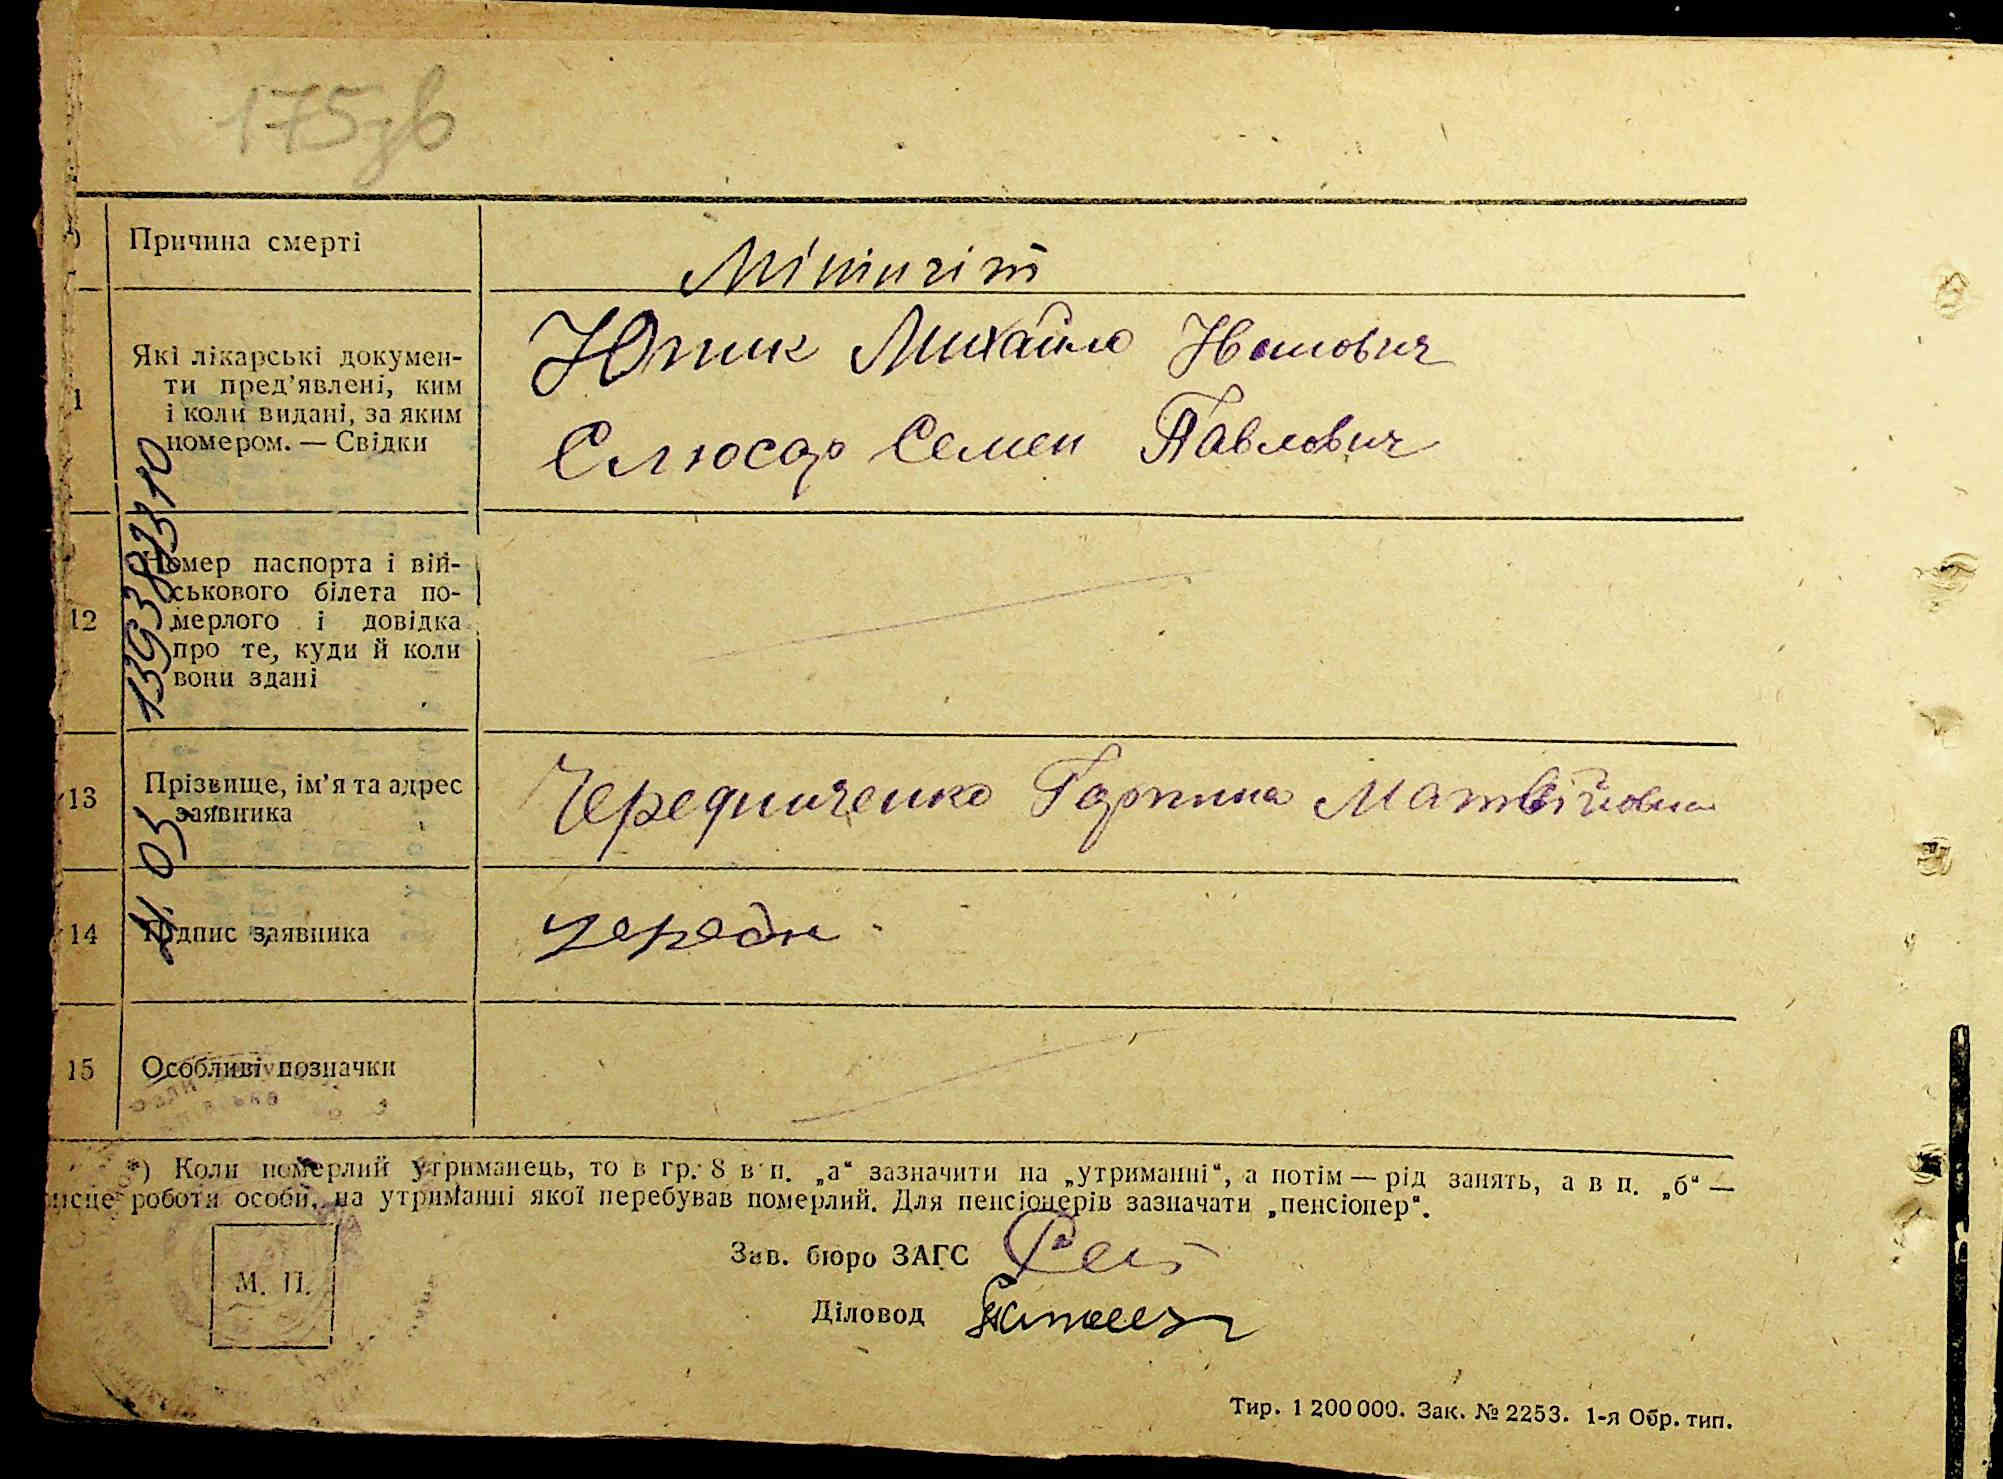 175зв
Причина смерті
Мінінгіт
1
Які лікарські докумен-
ти пред’явлені, ким
і коли видані, за яким
номером. — Свідки
Михайло Іванович
Слюсар Семен Павлович
12
Номер паспорта і вій-
ськового білета по-
мерлого і довідка
про те, куди й коли
вони здані
13
Прізвище, ім’я та адрес
заявника
Чередниченко Горпина Матвіївна
14
Підпис заявника
Чередн
15
Особливі позначки
*) Коли померлий утриманець, то в гр. 8 в п. „а“ зазначити на „утриманні“, а потім — рід занять, а в п. „б“ —
місце роботи особи, на утриманні якої перебував померлий. Для пенсіонерів зазначати „пенсіонер“.
Зав. бюро ЗАГС
Діловод
М. П.
Тир. 1 200 000. Зак. № 2253. 1-я Обр. тип.